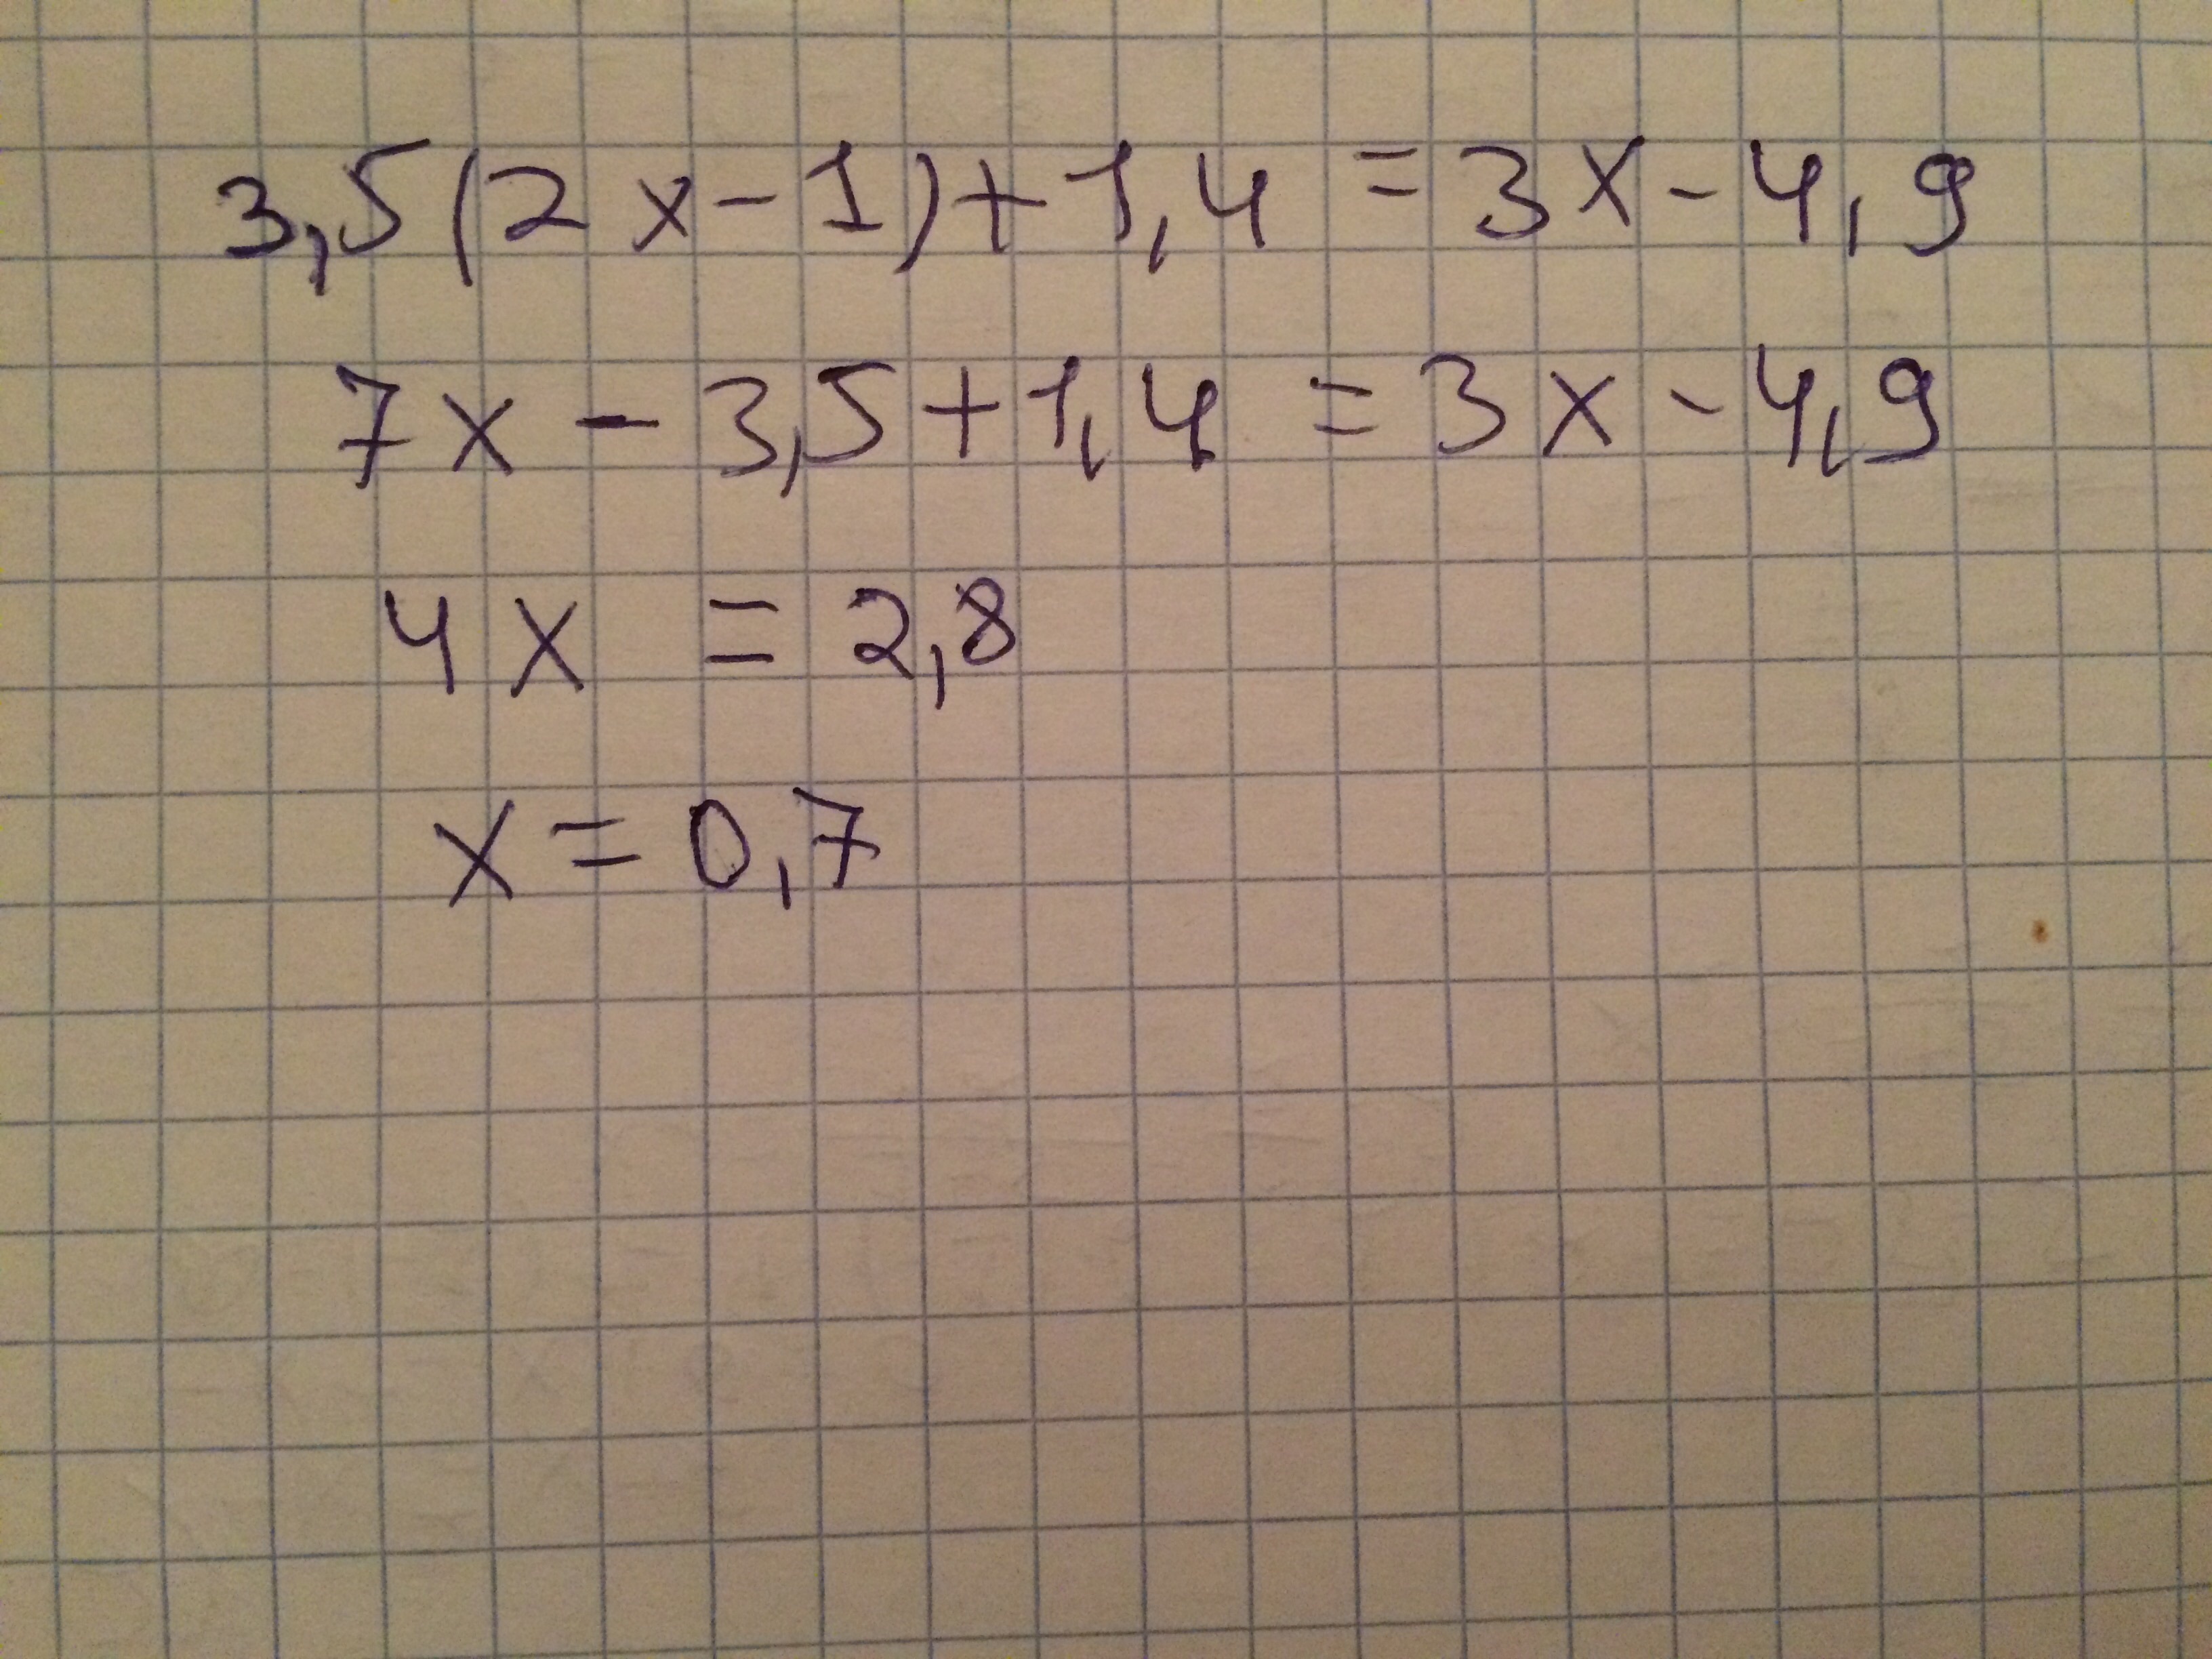 3,5(2x-1)+1,4 = 3x-4,9
7x - 3,5+1,4 = 3x-4,9
4x = 2,8
x = 0,7